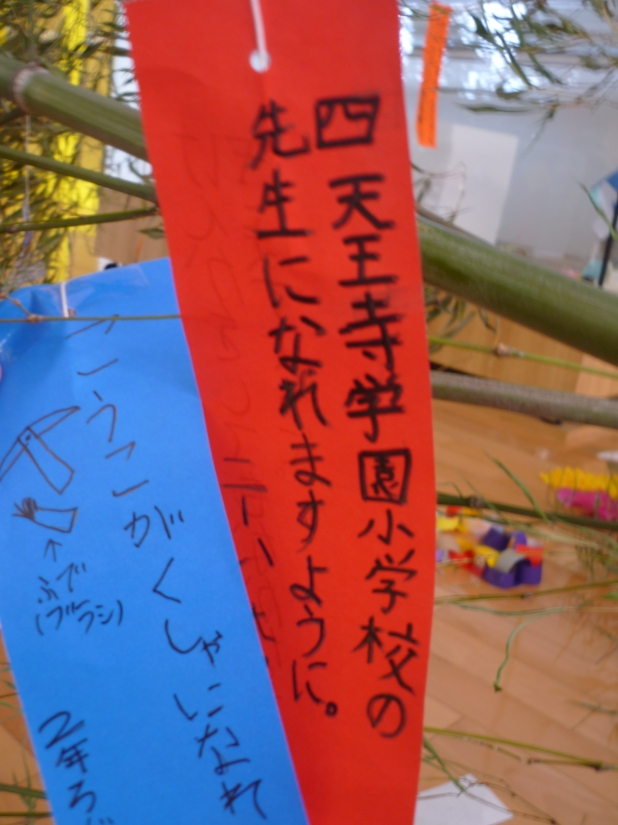 四天王寺学園小学校の
先生になれますように。
こうこがくしゃになれ
ふで
(ブラシ)
2年ろ